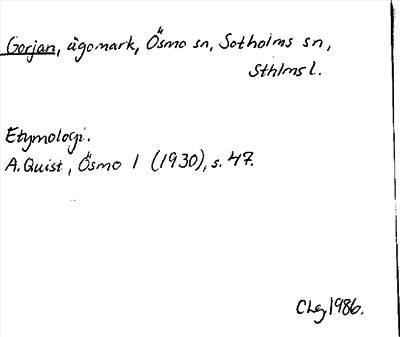 Gorjan, ägomark, Ösmo sn, Sotholms sn,
Sthlms l.
Etymologi.
A. Quist, Ösmo 1 (1930), s. 47.
CLg 1986.